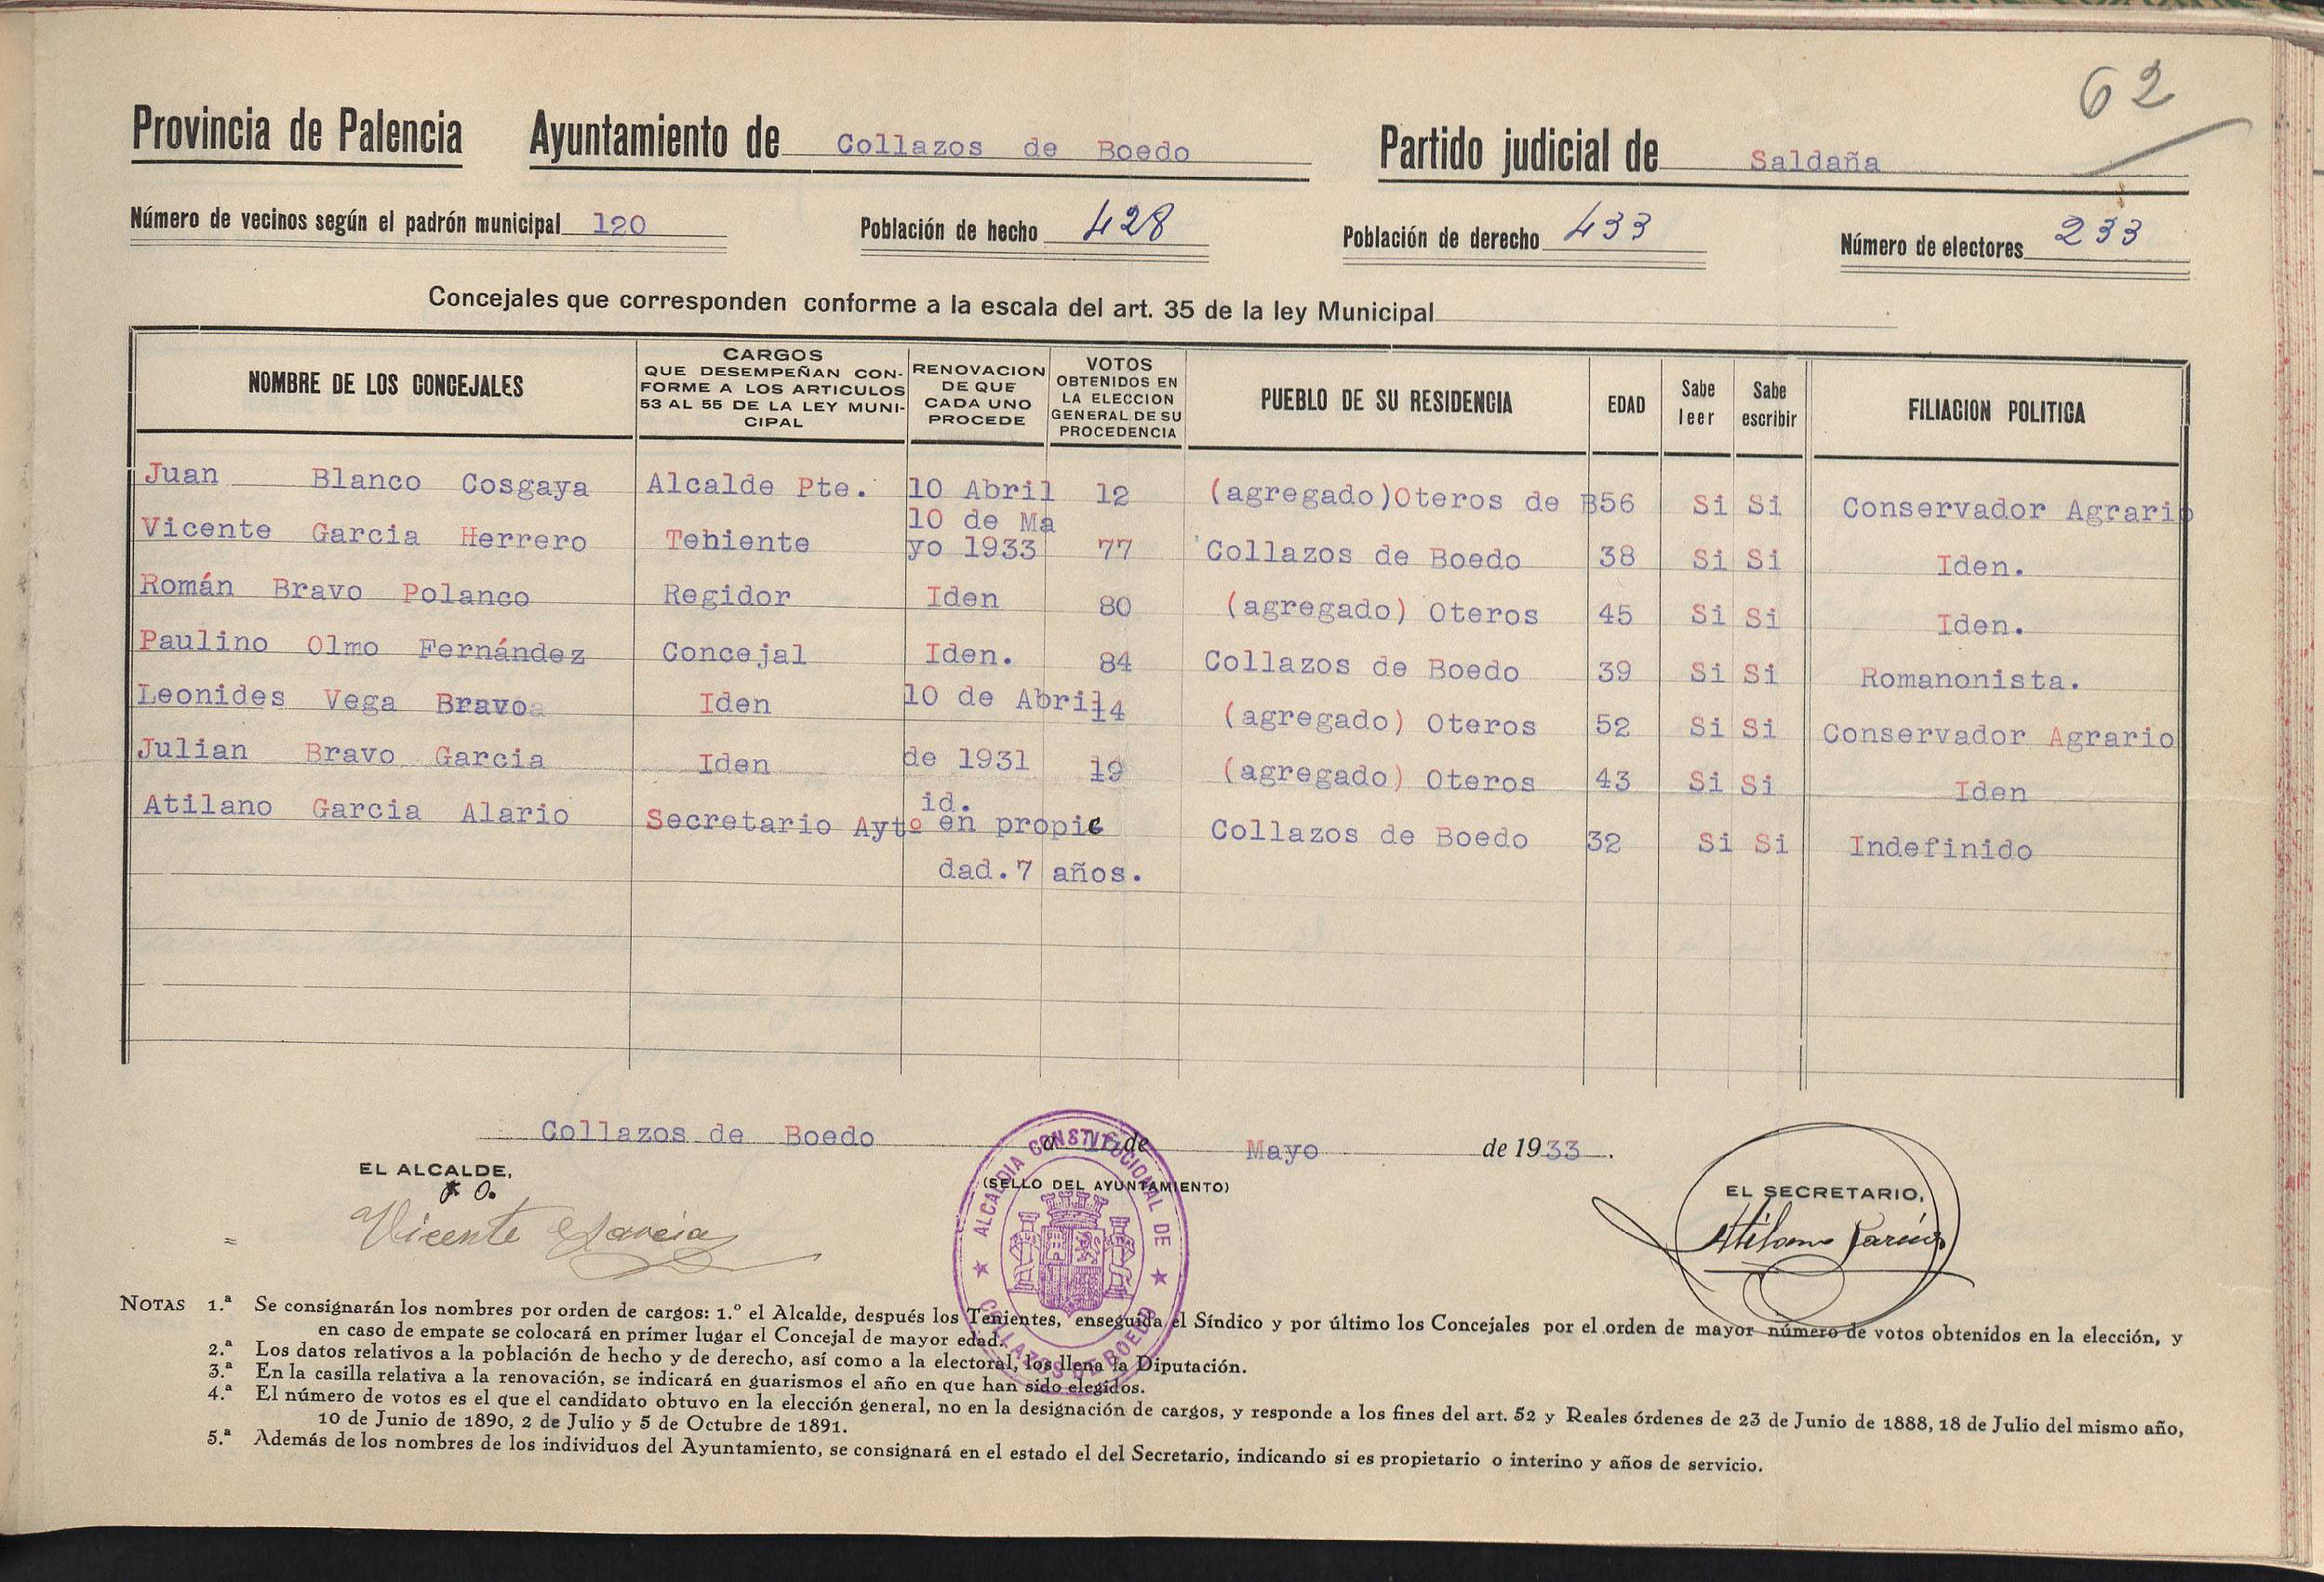 62
Provincia de Palencia Ayuntamiento de Collazos de Boedo Partido judicial de Saldaña
Número de vecinos según el padrón municipal 120 Población de hecho 428 Población de derecho 433 Número de electores 233
Concejales que corresponden conforme a la escala del art. 35 de la ley Municipal
NOMBRE DE LOS CONCEJALES
CARGOS
QUE DESEMPEÑAN CON-
FORME A LOS ARTICULOS
53 AL 55 DE LA LEY MUNI-
CIPAL
RENOVACION
DE QUE
CADA UNO
PROCEDE
VOTOS
OBTENIDOS EN
LA ELECCION
GENERAL DE SU
PROCEDENCIA
PUEBLO DE SU RESIDENCIA
EDAD
Sabe
leer
Sabe
escribir
FILIACION POLITICA
Juan Blanco Cosgaya Alcalde Pte. 10 Abril 12 (agregado)Oteros de B 56 Si Si Conservador Agrario
10 de Ma
Vicente Garcia Herrero Tehiente yo 1933 77 Collazos de Boedo 38 Si Si Iden.
Román Bravo Polanco Regidor Iden 80 (agregado) Oteros 45 Si Si Iden.
Paulino Olmo Fernández Concejal Iden. 84 Collazos de Boedo 39 Si Si Romanonista.
Leonides Vega Bravo Iden 10 de Abril 14 (agregado) Oteros 52 Si Si Conservador Agrario
Julian Bravo Garcia Iden de 1931 19 (agregado) Oteros 43 Si Si Iden
id.
Atilano Garcia Alario Secretario Aytº en propie Collazos de Boedo 32 Si Si Indefinido
dad. 7 años.
Collazos de Boedo a de Mayo de 1933.
EL ALCALDE,
Vicente Garcia
(SELLO DEL AYUNTAMIENTO)
ALCALDIA CONSTITUCIONAL DE
COLLAZOS DE BOEDO
EL SECRETARIO,
Atilano Garcia
NOTAS 1.ª Se consignarán los nombres por orden de cargos: 1.º el Alcalde, después los Tenientes, enseguida el Síndico y por último los Concejales por el orden de mayor número de votos obtenidos en la elección, y
en caso de empate se colocará en primer lugar el Concejal de mayor edad.
2.ª Los datos relativos a la población de hecho y de derecho, así como a la electoral, los llena la Diputación.
3.ª En la casilla relativa a la renovación, se indicará en guarismos el año en que han sido elegidos.
4.ª El número de votos es el que el candidato obtuvo en la elección general, no en la designación de cargos, y responde a los fines del art. 52 y Reales órdenes de 23 de Junio de 1888, 18 de Julio del mismo año,
10 de Junio de 1890, 2 de Julio y 5 de Octubre de 1891.
5.ª Además de los nombres de los individuos del Ayuntamiento, se consignará en el estado el del Secretario, indicando si es propietario o interino y años de servicio.